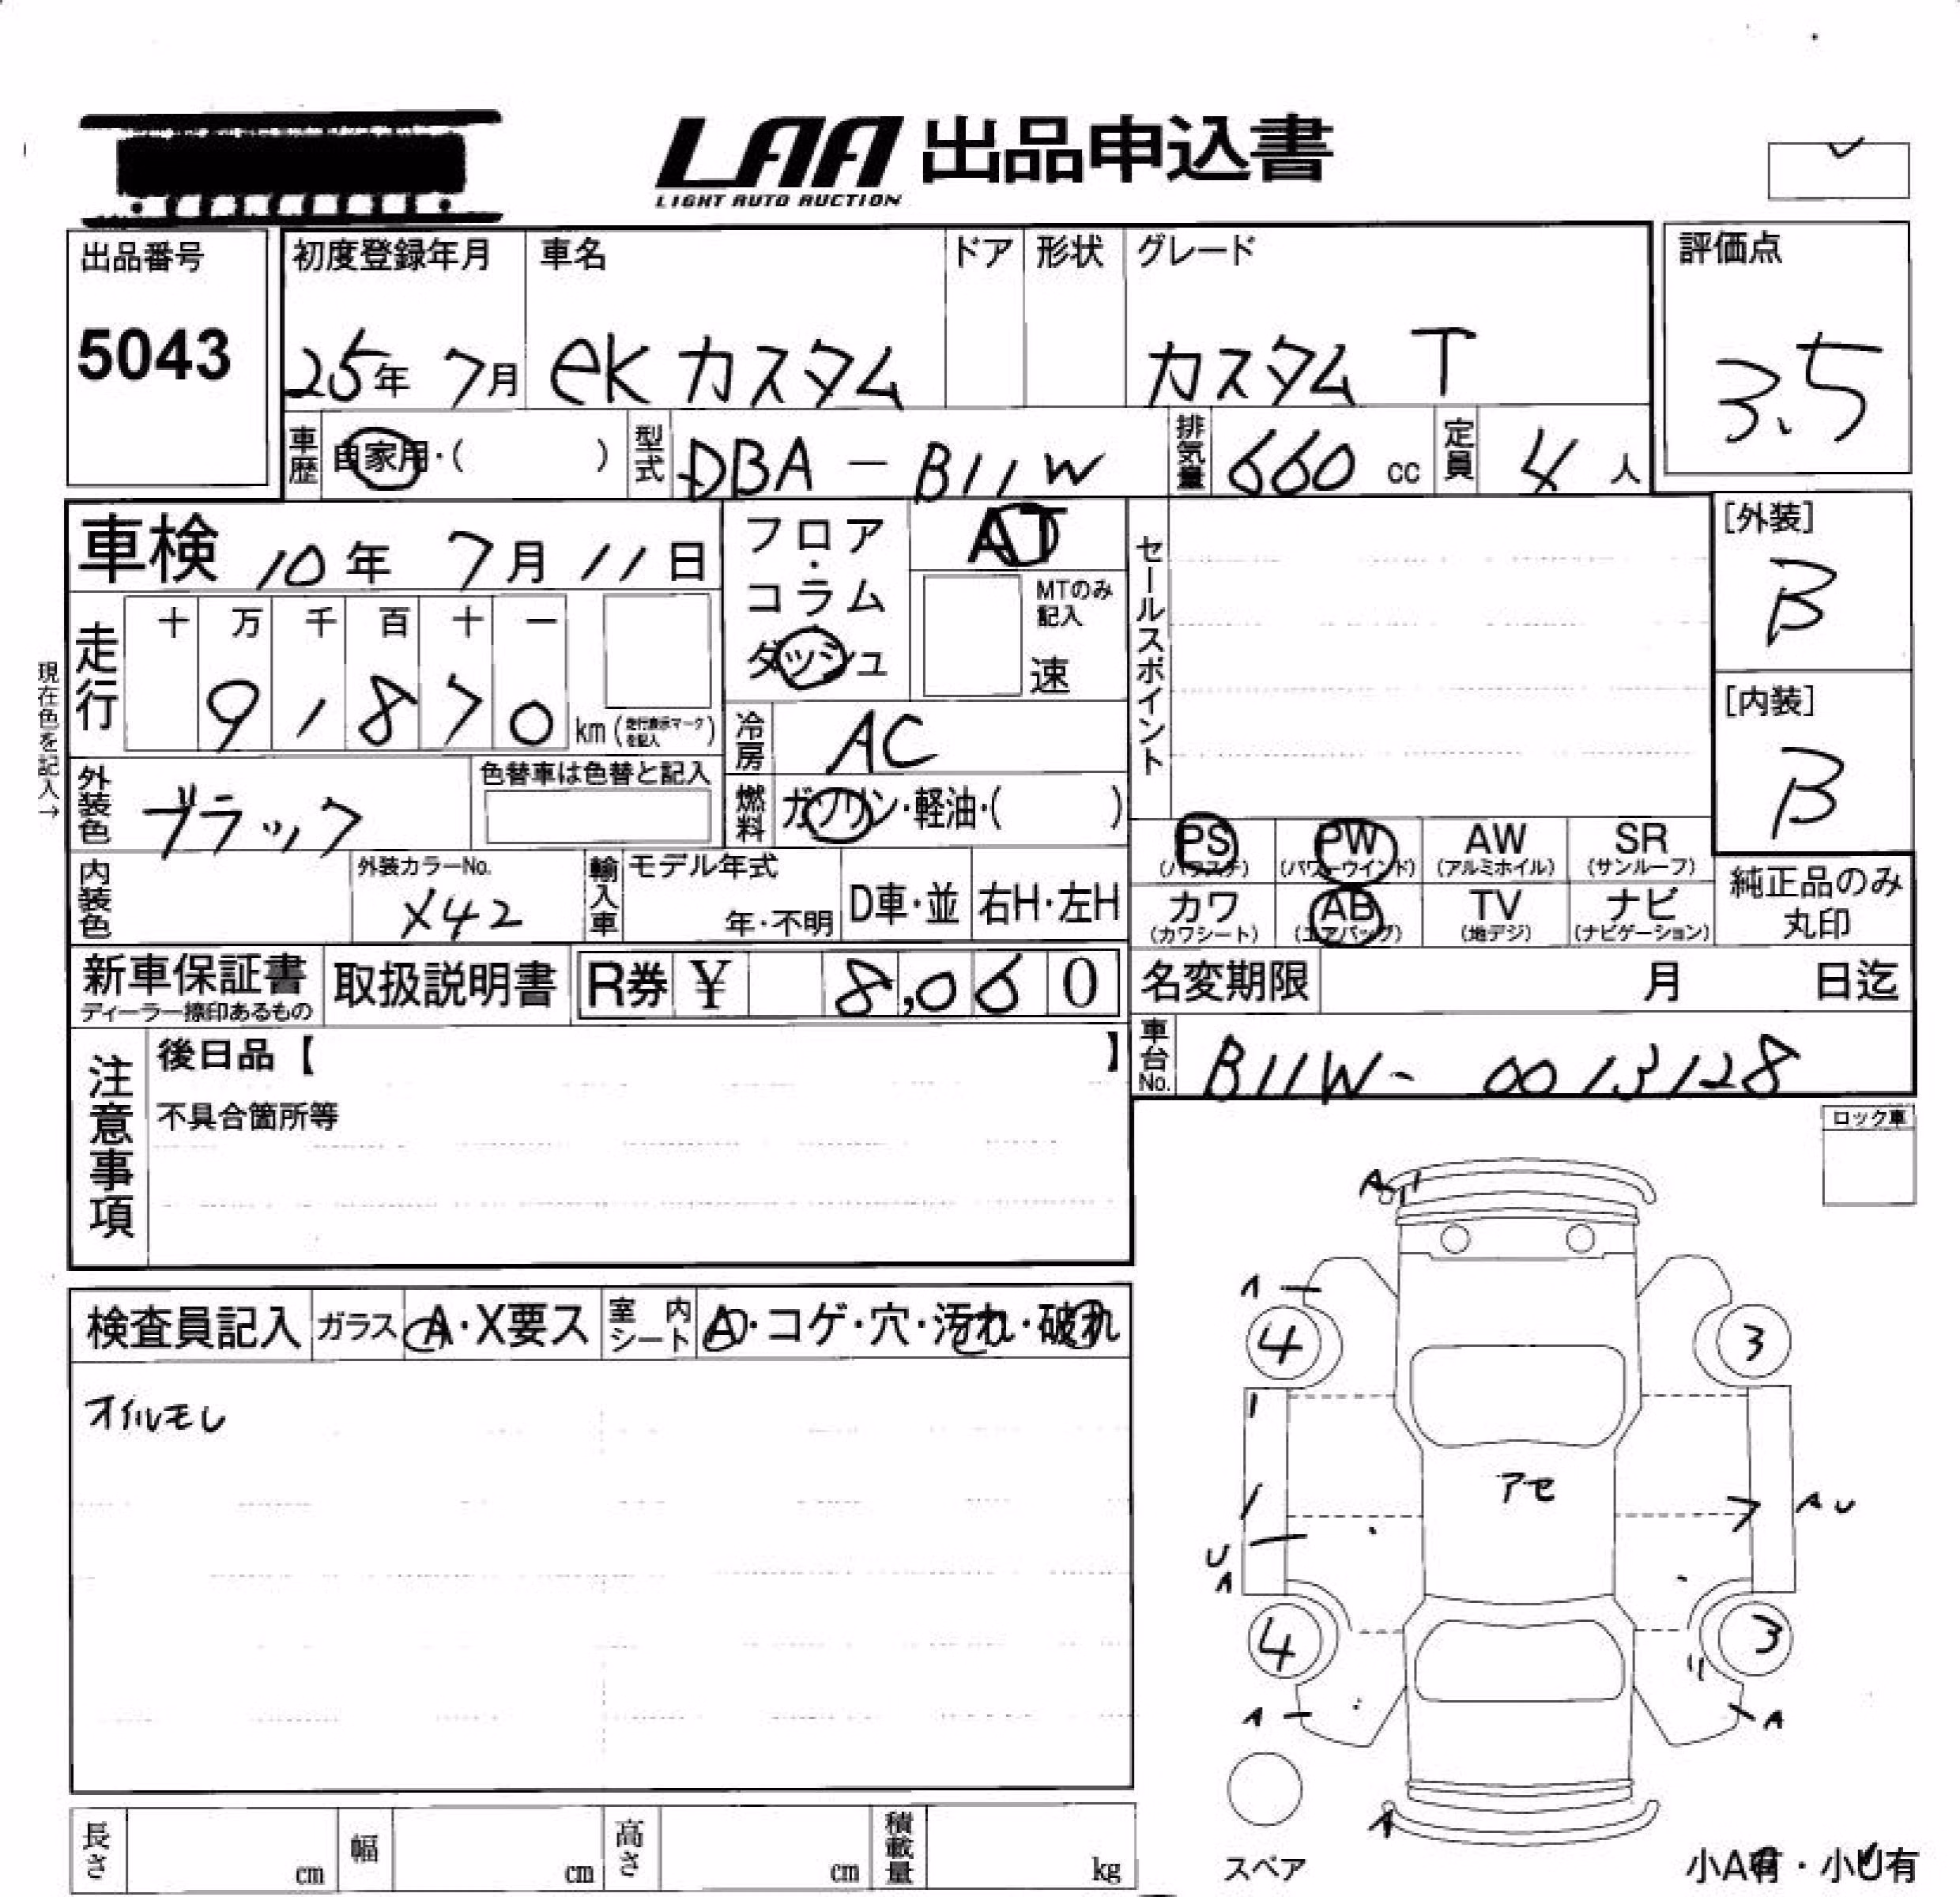 LAA 出品申込書
LIGHT AUTO AUCTION
出品番号
5043
初度登録年月 車名 ドア 形状 グレード
25年 7月 eKカスタム カスタム T
評価点
3.5
車歴 自家用・( ) 型式 DBA-B11W 排気量 660 cc 定員 4 人
車検 10年 7月 11日
フロア・コラム ダッシュ
AT
MTのみ記入
速
セールスポイント
[外装]
B
[内装]
B
現在色を記入→
走行 十 万 千 百 十 一
9 1 8 7 0 km (走行表示マークを記入)
冷房 AC
外装色 ブラック 色替車は色替と記入
燃料 ガソリン・軽油・( )
PS (パワステ) PW (パワーウインド) AW (アルミホイル) SR (サンルーフ)
カワ (カワシート) AB (エアバッグ) TV (地デジ) ナビ (ナビゲーション)
純正品のみ
丸印
内装色 外装カラーNo. X42 輸入車 モデル年式 年・不明 D車・並 右H・左H
新車保証書 ディーラー捺印あるもの 取扱説明書 R券 ¥ 8,060
名変期限 月 日迄
車台No. B11W- 0013128
注意事項
後日品【 】
不具合箇所等
ロック車
検査員記入 ガラス A・X要ス 室内シート A・コゲ・穴・汚れ・破れ
オイルモレ
A
A
4 3
アセ
A U
U
A
4 3
A A
A
スペア
小A有・小U有
長さ cm 幅 cm 高さ cm 積載量 kg